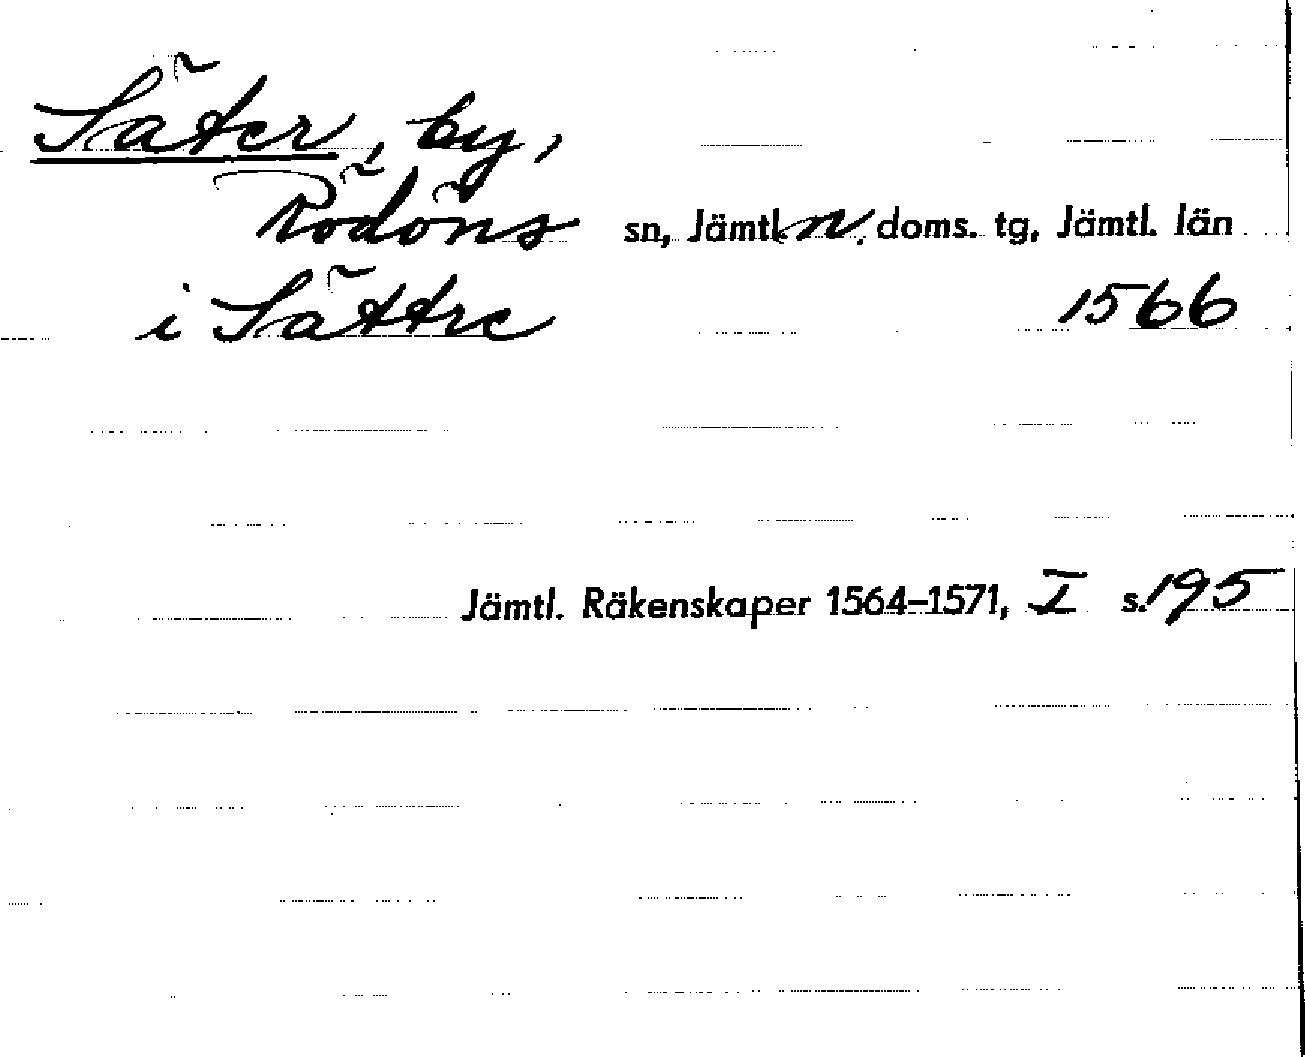 Säter, by,
Rödöns sn, Jämtl. n. doms. tg, Jämtl. län
i Sättre 1566
Jämtl. Räkenskaper 1564-1571, I s. 195